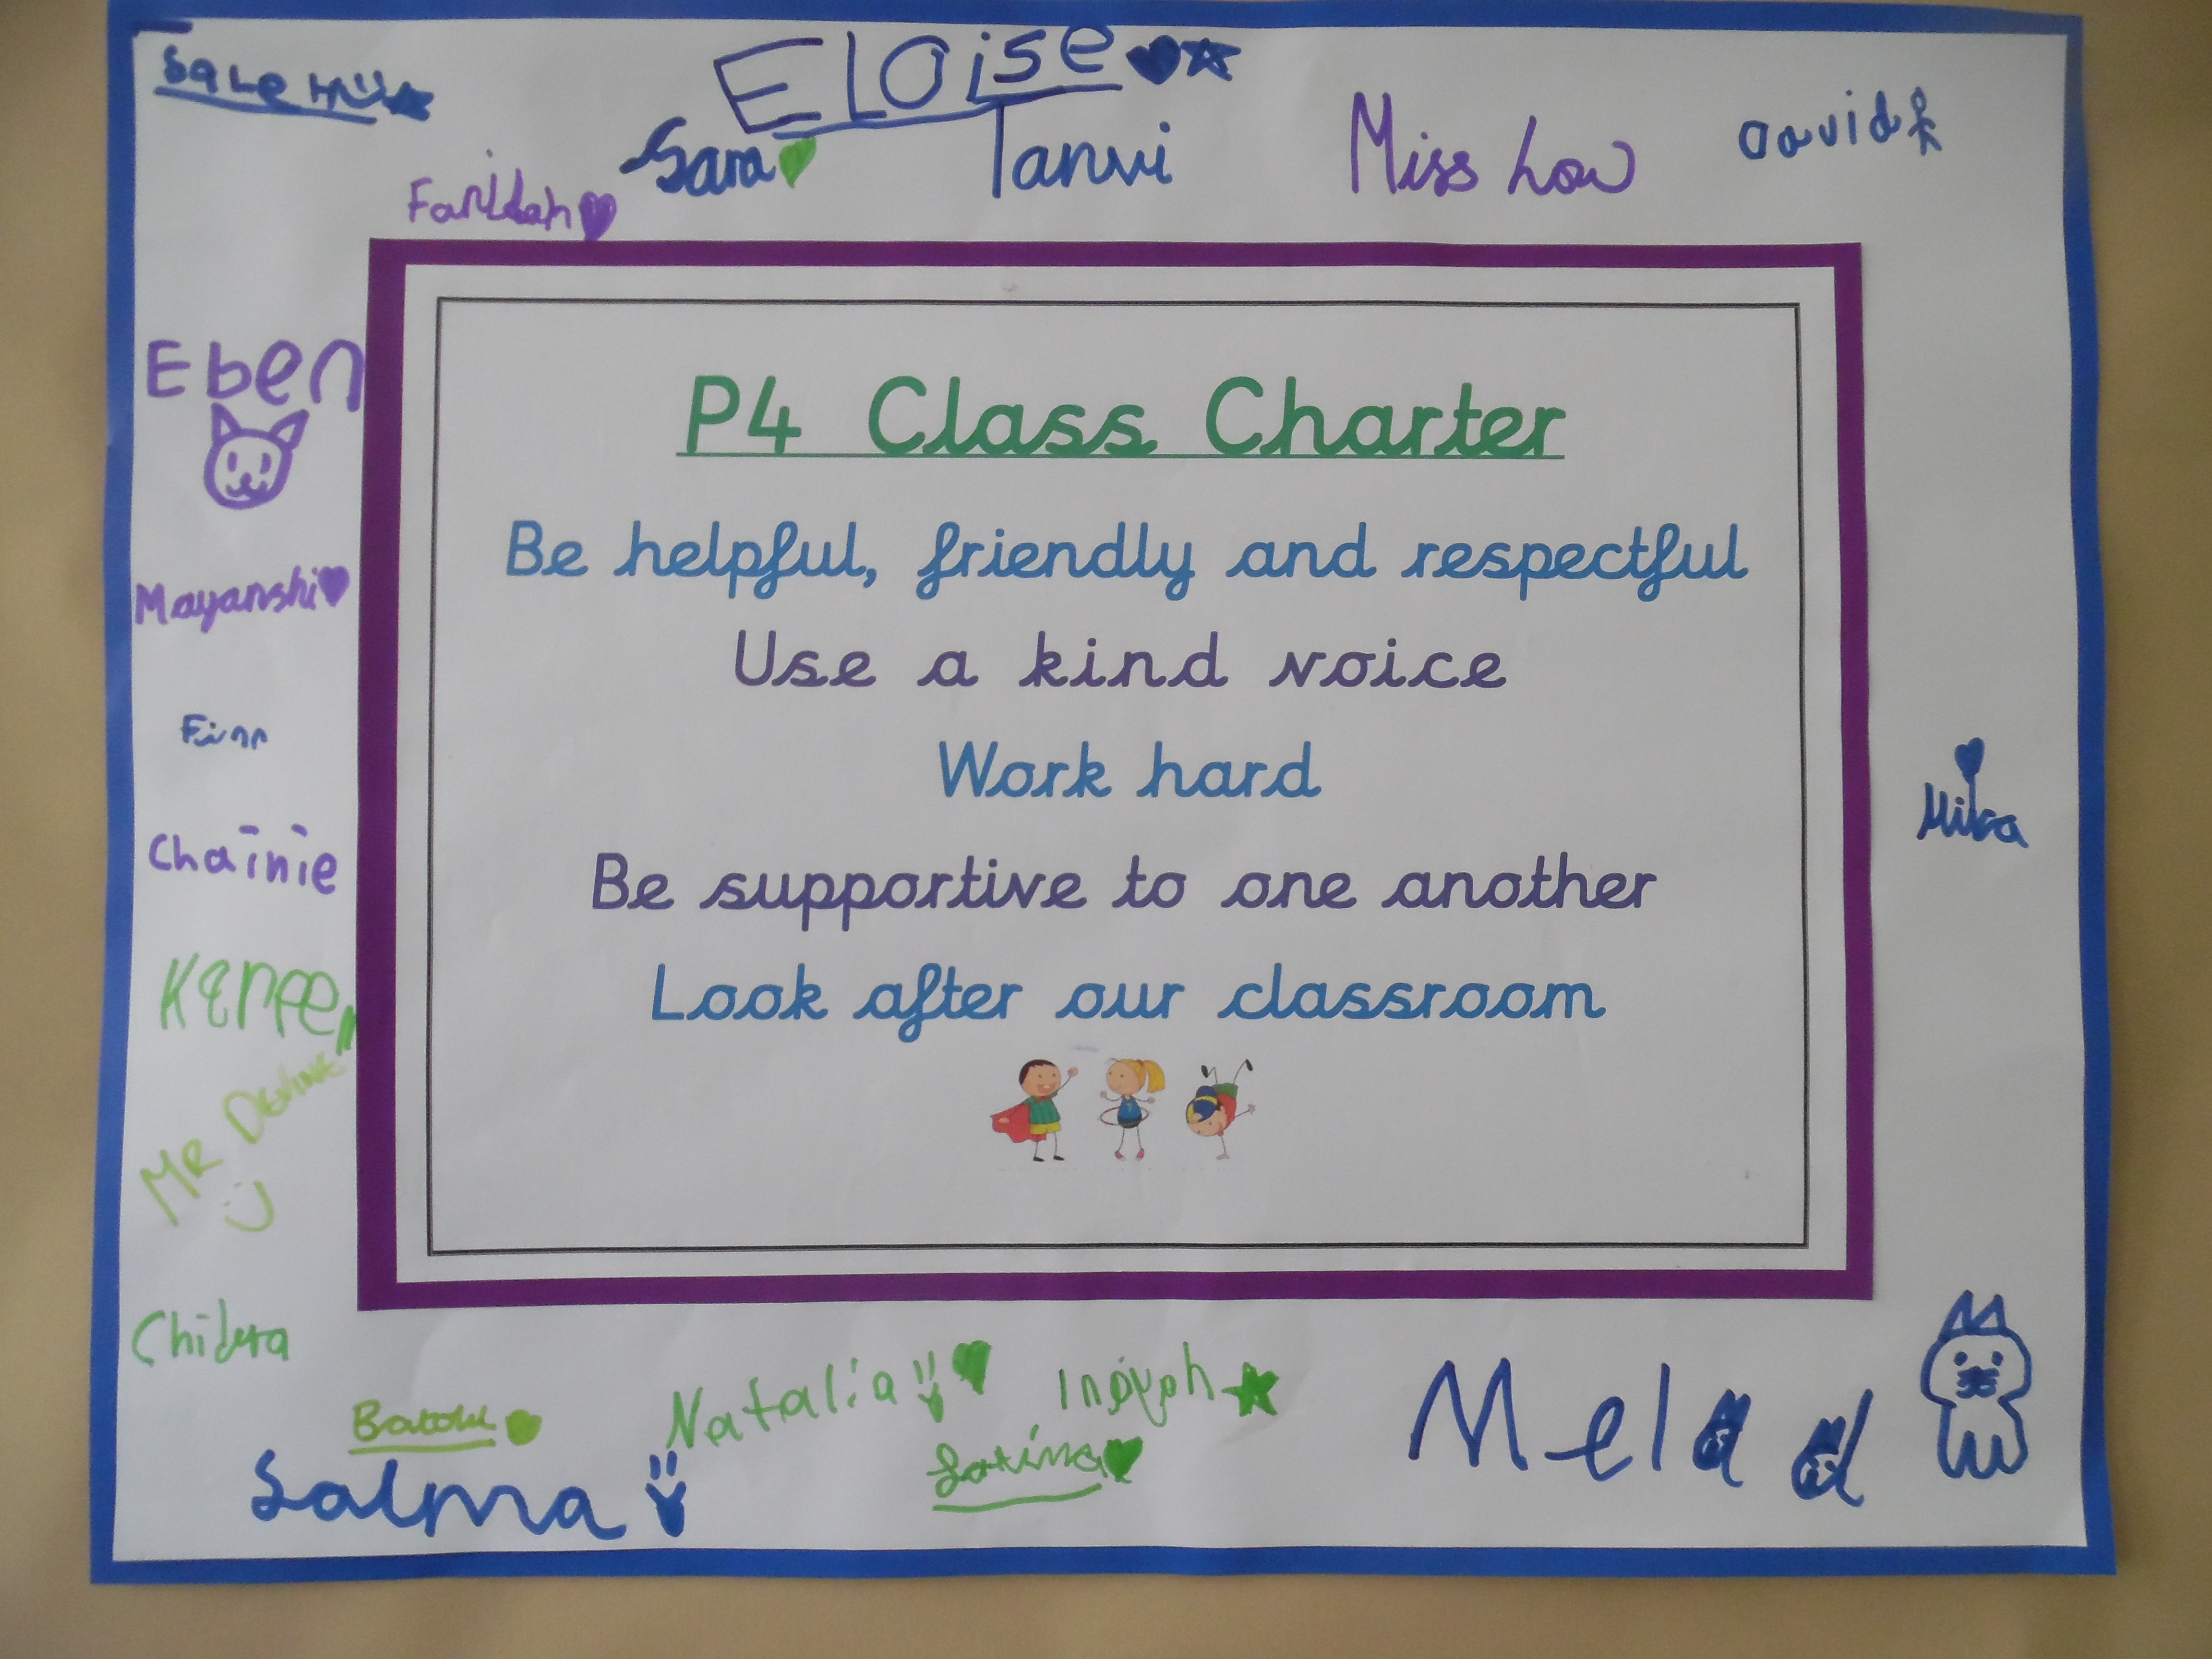 Eloise
Salehu
Sara
Tanvi
Miss Low
David
Faridah
P4 Class Charter
Be helpful, friendly and respectful
Use a kind voice
Work hard
Be supportive to one another
Look after our classroom
Eben
Mayanshi
Finn
Chainie
Mr Devine
Mika
Chidera
Natalia
Batoul
Salma
Melad